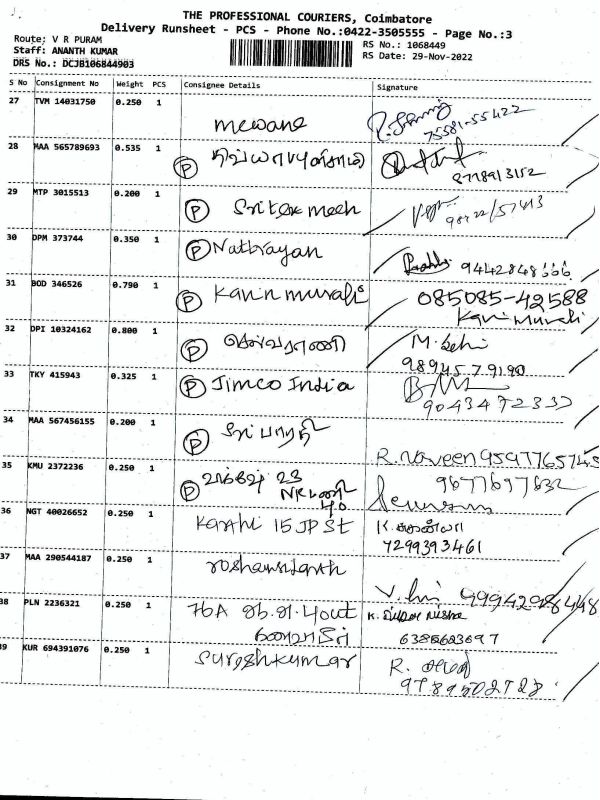 THE PROFESSIONAL COURIERS, Coimbatore
Delivery Runsheet - PCS - Phone No.:0422-3505555 - Page No.:3
Route; V R PURAM
Staff: ANANTH KUMAR
DRS No.: DCJB106844903
RS No.: 1068449
RS Date: 29-Nov-2022
S No Consignment No Weight PCS Consignee Details Signature
27 TVM 14031750 0.250 1
75581-55422
28 MAA 565789693 0.535 1
P
8778913152
29 MTP 3015513 0.200 1
P Sritex mech
30 DPM 373744 0.350 1
P Nathrayan
9442848666
31 BOD 346526 0.790 1
P Kavin murali
085085-42588
Kavi Murali
32 DPI 10324162 0.800 1
P செல்வராணி
M.
98945 79190
33 TKY 415943 0.325 1
P Jimco India
34 MAA 567456155 0.200 1
P ஸ்ரீ பாரதி
R. Naveen 9597765745
35 KMU 2372236 0.250 1
P 23
9677697632
36 NGT 40026652 0.250 1
Karthi 15 JP St
K.
7299393461
37 MAA 290544187 0.250 1
V. 9994298448
38 PLN 2236321 0.250 1
76A
K. Nisha
6385623697
39 KUR 694391076 0.250 1
Sureshkumar
R.
9789502728